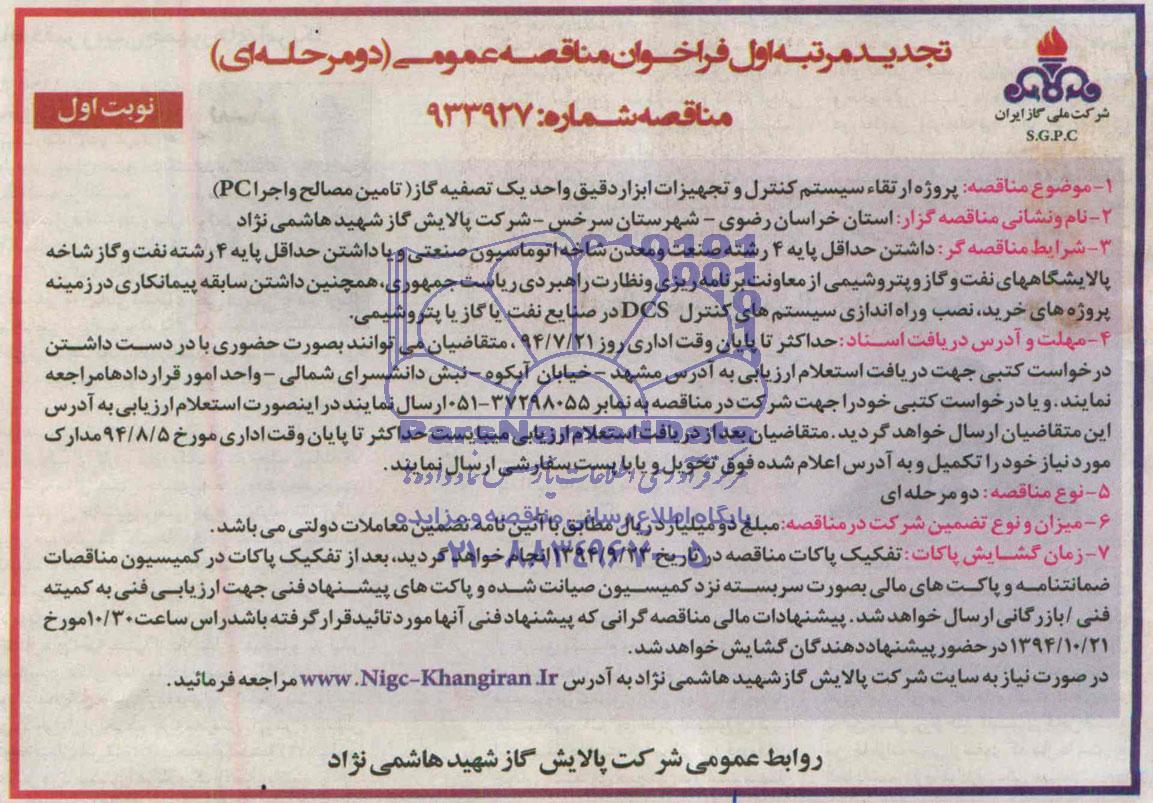 تجدید مرتبه اول فراخوان مناقصه عمومی (دو مرحله ای)
مناقصه شماره: ۹۳۳۹۲۷
نوبت اول
شرکت ملی گاز ایران
S.G.P.C
۱-موضوع مناقصه: پروژه ارتقاء سیستم کنترل و تجهیزات ابزار دقیق واحد یک تصفیه گاز( تامین مصالح و اجرا PC)
۲-نام ونشانی مناقصه گزار: استان خراسان رضوی - شهرستان سرخس -شرکت پالایش گاز شهید هاشمی نژاد
۳-شرایط مناقصه گر: داشتن حداقل پایه ۴ رشته صنعت ومعدن شاخه اتوماسیون صنعتی و یا داشتن حداقل پایه ۴ رشته نفت وگاز شاخه
پالایشگاههای نفت و گاز و پتروشیمی از معاونت برنامه ریزی ونظارت راهبردی ریاست جمهوری، همچنین داشتن سابقه پیمانکاری در زمینه
پروژه های خرید، نصب و راه اندازی سیستم های کنترل DCS در صنایع نفت یا گاز یا پتروشیمی.
۴-مهلت و آدرس دریافت اسناد: حداکثر تا پایان وقت اداری روز ۹۴/۷/۲۱ ، متقاضیان می توانند بصورت حضوری با در دست داشتن
درخواست کتبی جهت دریافت استعلام ارزیابی به آدرس مشهد -خیابان آبکوه -نبش دانشسرای شمالی -واحد امور قراردادها مراجعه
نمایند. و یا درخواست کتبی خود را جهت شرکت در مناقصه به نمابر ۳۷۲۹۸۰۵۵-۰۵۱ ارسال نمایند در اینصورت استعلام ارزیابی به آدرس
این متقاضیان ارسال خواهد گردید. متقاضیان بعد از دریافت استعلام ارزیابی میبایست حداکثر تا پایان وقت اداری مورخ ۹۴/۸/۵ مدارک
مورد نیاز خود را تکمیل و به آدرس اعلام شده فوق تحویل و یا با پست سفارشی ارسال نمایند.
۵-نوع مناقصه: دو مرحله ای
۶-میزان و نوع تضمین شرکت در مناقصه: مبلغ دو میلیارد ریال مطابق با آئین نامه تضمین معاملات دولتی می باشد.
۷-زمان گشایش پاکات: تفکیک پاکات مناقصه در تاریخ ۱۳۹۴/۹/۲۳ انجام خواهد گردید، بعد از تفکیک پاکات در کمیسیون مناقصات
ضمانتنامه و پاکت های مالی بصورت سربسته نزد کمیسیون صیانت شده و پاکت های پیشنهاد فنی جهت ارزیابی فنی به کمیته
فنی /بازرگانی ارسال خواهد شد. پیشنهادات مالی مناقصه گرانی که پیشنهاد فنی آنها مورد تائید قرار گرفته باشد راس ساعت ۱۰/۳۰ مورخ
۱۳۹۴/۱۰/۲۱ در حضور پیشنهاد دهندگان گشایش خواهد شد.
در صورت نیاز به سایت شرکت پالایش گاز شهید هاشمی نژاد به آدرس www.Nigc-Khangiran.Ir مراجعه فرمائید.
روابط عمومی شرکت پالایش گاز شهید هاشمی نژاد
ParsNamadData
مرکز فرآوری اطلاعات پارس نماد داده ها
پایگاه اطلاع رسانی مناقصه و مزایده
۰۲۱-۸۸۳۴۹۶۷۰-۵